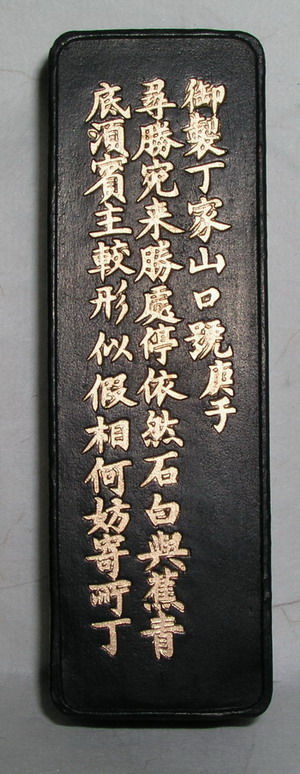 御製丁家山口號庚子
尋勝宛来勝處停依然石白與蕉青
底須賓主較形似假相何妨寄所丁